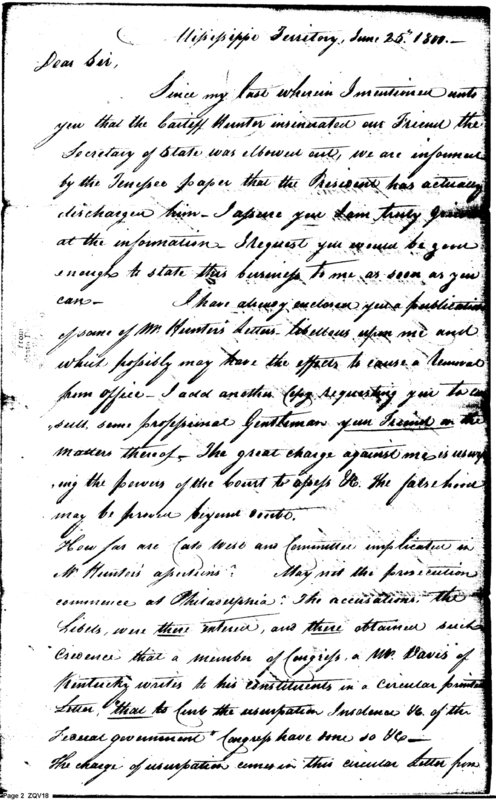 Missisippi Territory, June 25th 1800.—
Dear Sir,
Since my last wherein I mentioned unto
you that the Hunter insinuated our Friend the
Secretary of State was elbowed out, we are informed
by the Tenessee paper that the President has actually
discharged him — I assure you I am truly grieved
at the information — I request you would be good
enough to state this business to me as soon as you
can — I have already enclosed you a publication
of some of Mr. Hunters Letters libellous upon me and
which possibly may have the effects to cause a removal
from office — I add another Copy requesting you to con
sult some professional Gentleman your Friend on the
matters thereof — The great charge against me is usurp
ing the powers of the Court to assess &c. the falsehood
may be proved beyond doubt.
How far are Cato West and Committee implicated in
Mr Hunter's assertions? May not the prosecution
commence at Philadelphia? The accusations the
Libels, were there entered, and there obtained such
Credence that a member of Congress, a Mr. Davis of
Kentucky writes to his constituents in a circular printed
Letter, "that to Curb the usurpation Insolence &c. of the
Federal government" Congress have done so &c —
The charge of usurpation comes in this circular Letter from
Page 2 ZQV18